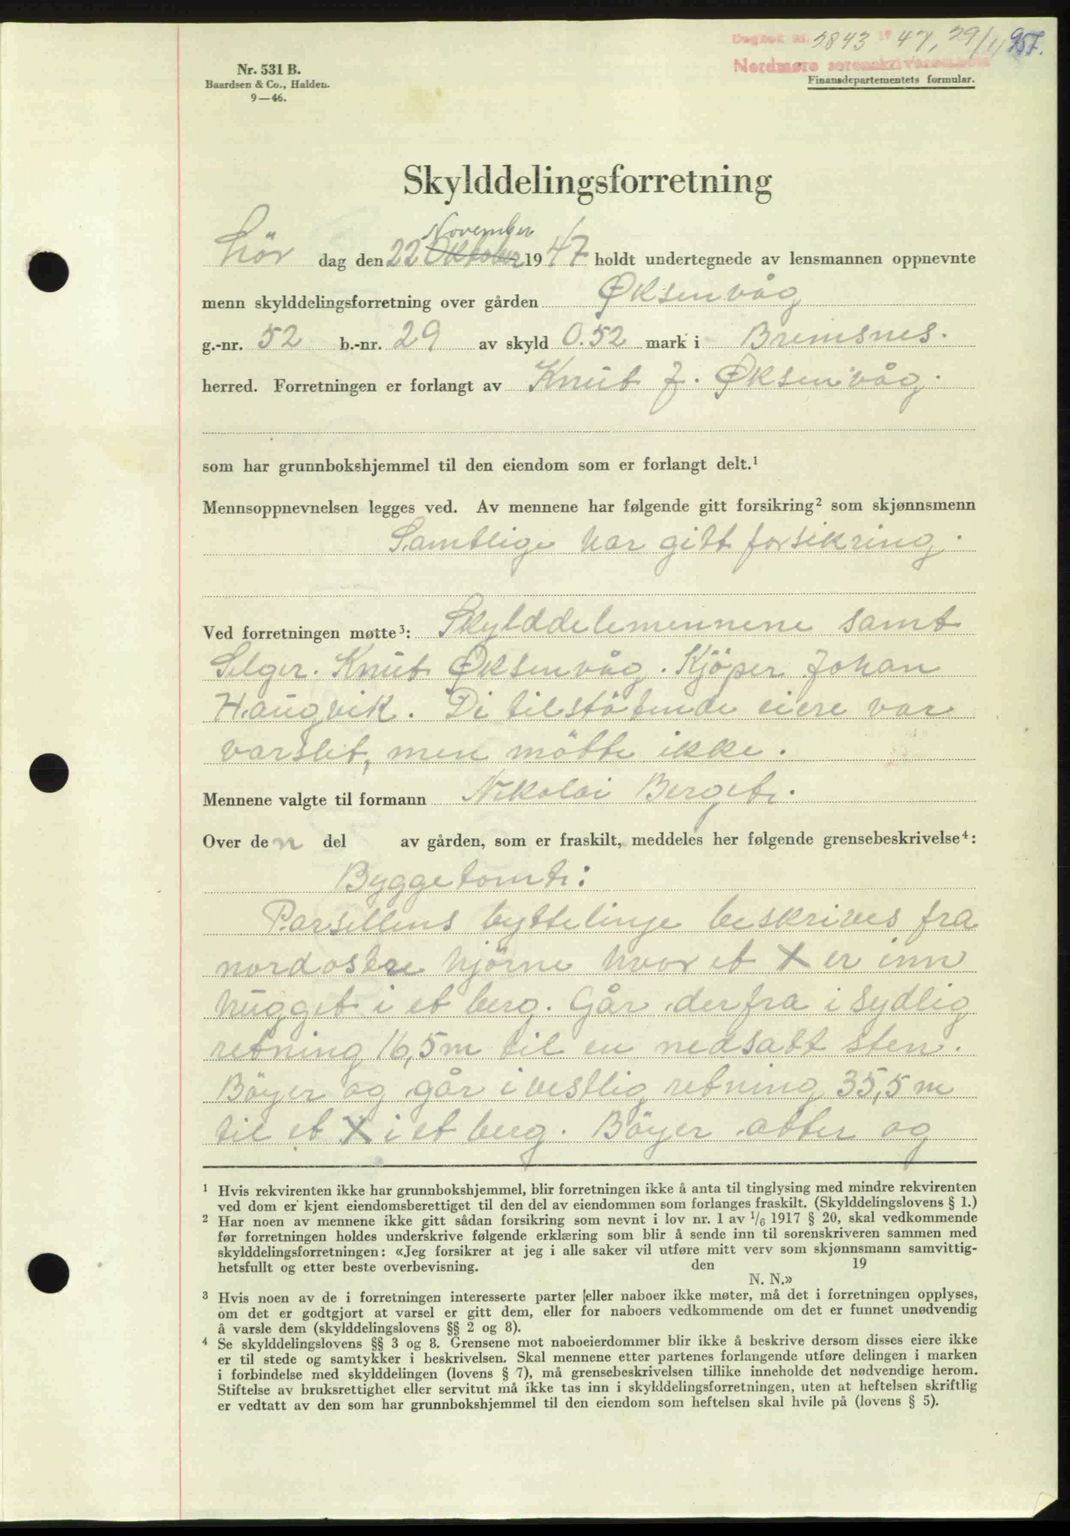 Dagbok nr. 2843 19 47, 29/11 957.
Nordmøre sorenskriverembete
Nr. 531 B.
Baardsen & Co., Halden.
9—46.
Finansdepartementets formular.
Skylddelingsforretning
Lör dag den 22 Oktober November 1947 holdt undertegnede av lensmannen oppnevnte
menn skylddelingsforretning over gården Øksenvåg
g.-nr. 52 b.-nr. 29 av skyld 0.52 mark i Bremsnes.
herred. Forretningen er forlangt av Knut J. Øksenvåg.
som har grunnbokshjemmel til den eiendom som er forlangt delt.¹
Mennsoppnevnelsen legges ved. Av mennene har følgende gitt forsikring² som skjønnsmenn
Samtlige har gitt forsikring.
Ved forretningen møtte³: Skylddelemennene samt
Selger. Knut Øksenvåg. Kjöper Johan
Haugvik. De tilstötende eiere var
varslet, men mötte ikke.
Mennene valgte til formann Nikolai Bergete.
Over den del av gården, som er fraskilt, meddeles her følgende grensebeskrivelse⁴:
Byggetomte:
Parsellens byttelinje beskrives fra
nordostre hjörne hvor et X er inn
hugget i et berg. Går derfra i sydlig
retning 16,5 m til en nedsatt sten.
Böyer og går i vestlig retning 35,5 m
til et X i et berg. Böyer atter og
¹ Hvis rekvirenten ikke har grunnbokshjemmel, blir forretningen ikke å anta til tinglysing med mindre rekvirenten
ved dom er kjent eiendomsberettiget til den del av eiendommen som forlanges fraskilt. (Skylddelingslovens § 1.)
² Har noen av mennene ikke gitt sådan forsikring som nevnt i lov nr. 1 av 1/6 1917 § 20, skal vedkommende
før forretningen holdes underskrive følgende erklæring som blir å sende inn til sorenskriveren sammen med
skylddelingsforretningen: «Jeg forsikrer at jeg i alle saker vil utføre mitt verv som skjønnsmann samvittig-
hetsfullt og etter beste overbevisning. den 19
N. N.»
³ Hvis noen av de i forretningen interesserte parter eller naboer ikke møter, må det i forretningen opplyses,
om det er godtgjort at varsel er gitt dem, eller for naboers vedkommende om det er funnet unødvendig
å varsle dem (skylddelingslovens §§ 2 og 8).
⁴ Se skylddelingslovens §§ 3 og 8. Grensene mot naboeierdommer blir ikke å beskrive dersom disses eiere ikke
er til stede og samtykker i beskrivelsen. Skal mennene etter partenes forlangende utføre delingen i marken
i forbindelse med skylddelingen (lovens § 7), må grensebeskrivelsen tillike inneholde det nødvendige herom.
Stiftelse av bruksrettighet eller servitut må ikke tas inn i skylddelingsforretningen, uten at heftelsen skriftlig
er vedtatt av den som har grunnbokshjemmel til den eiendom som heftelsen skal hvile på (lovens § 5).